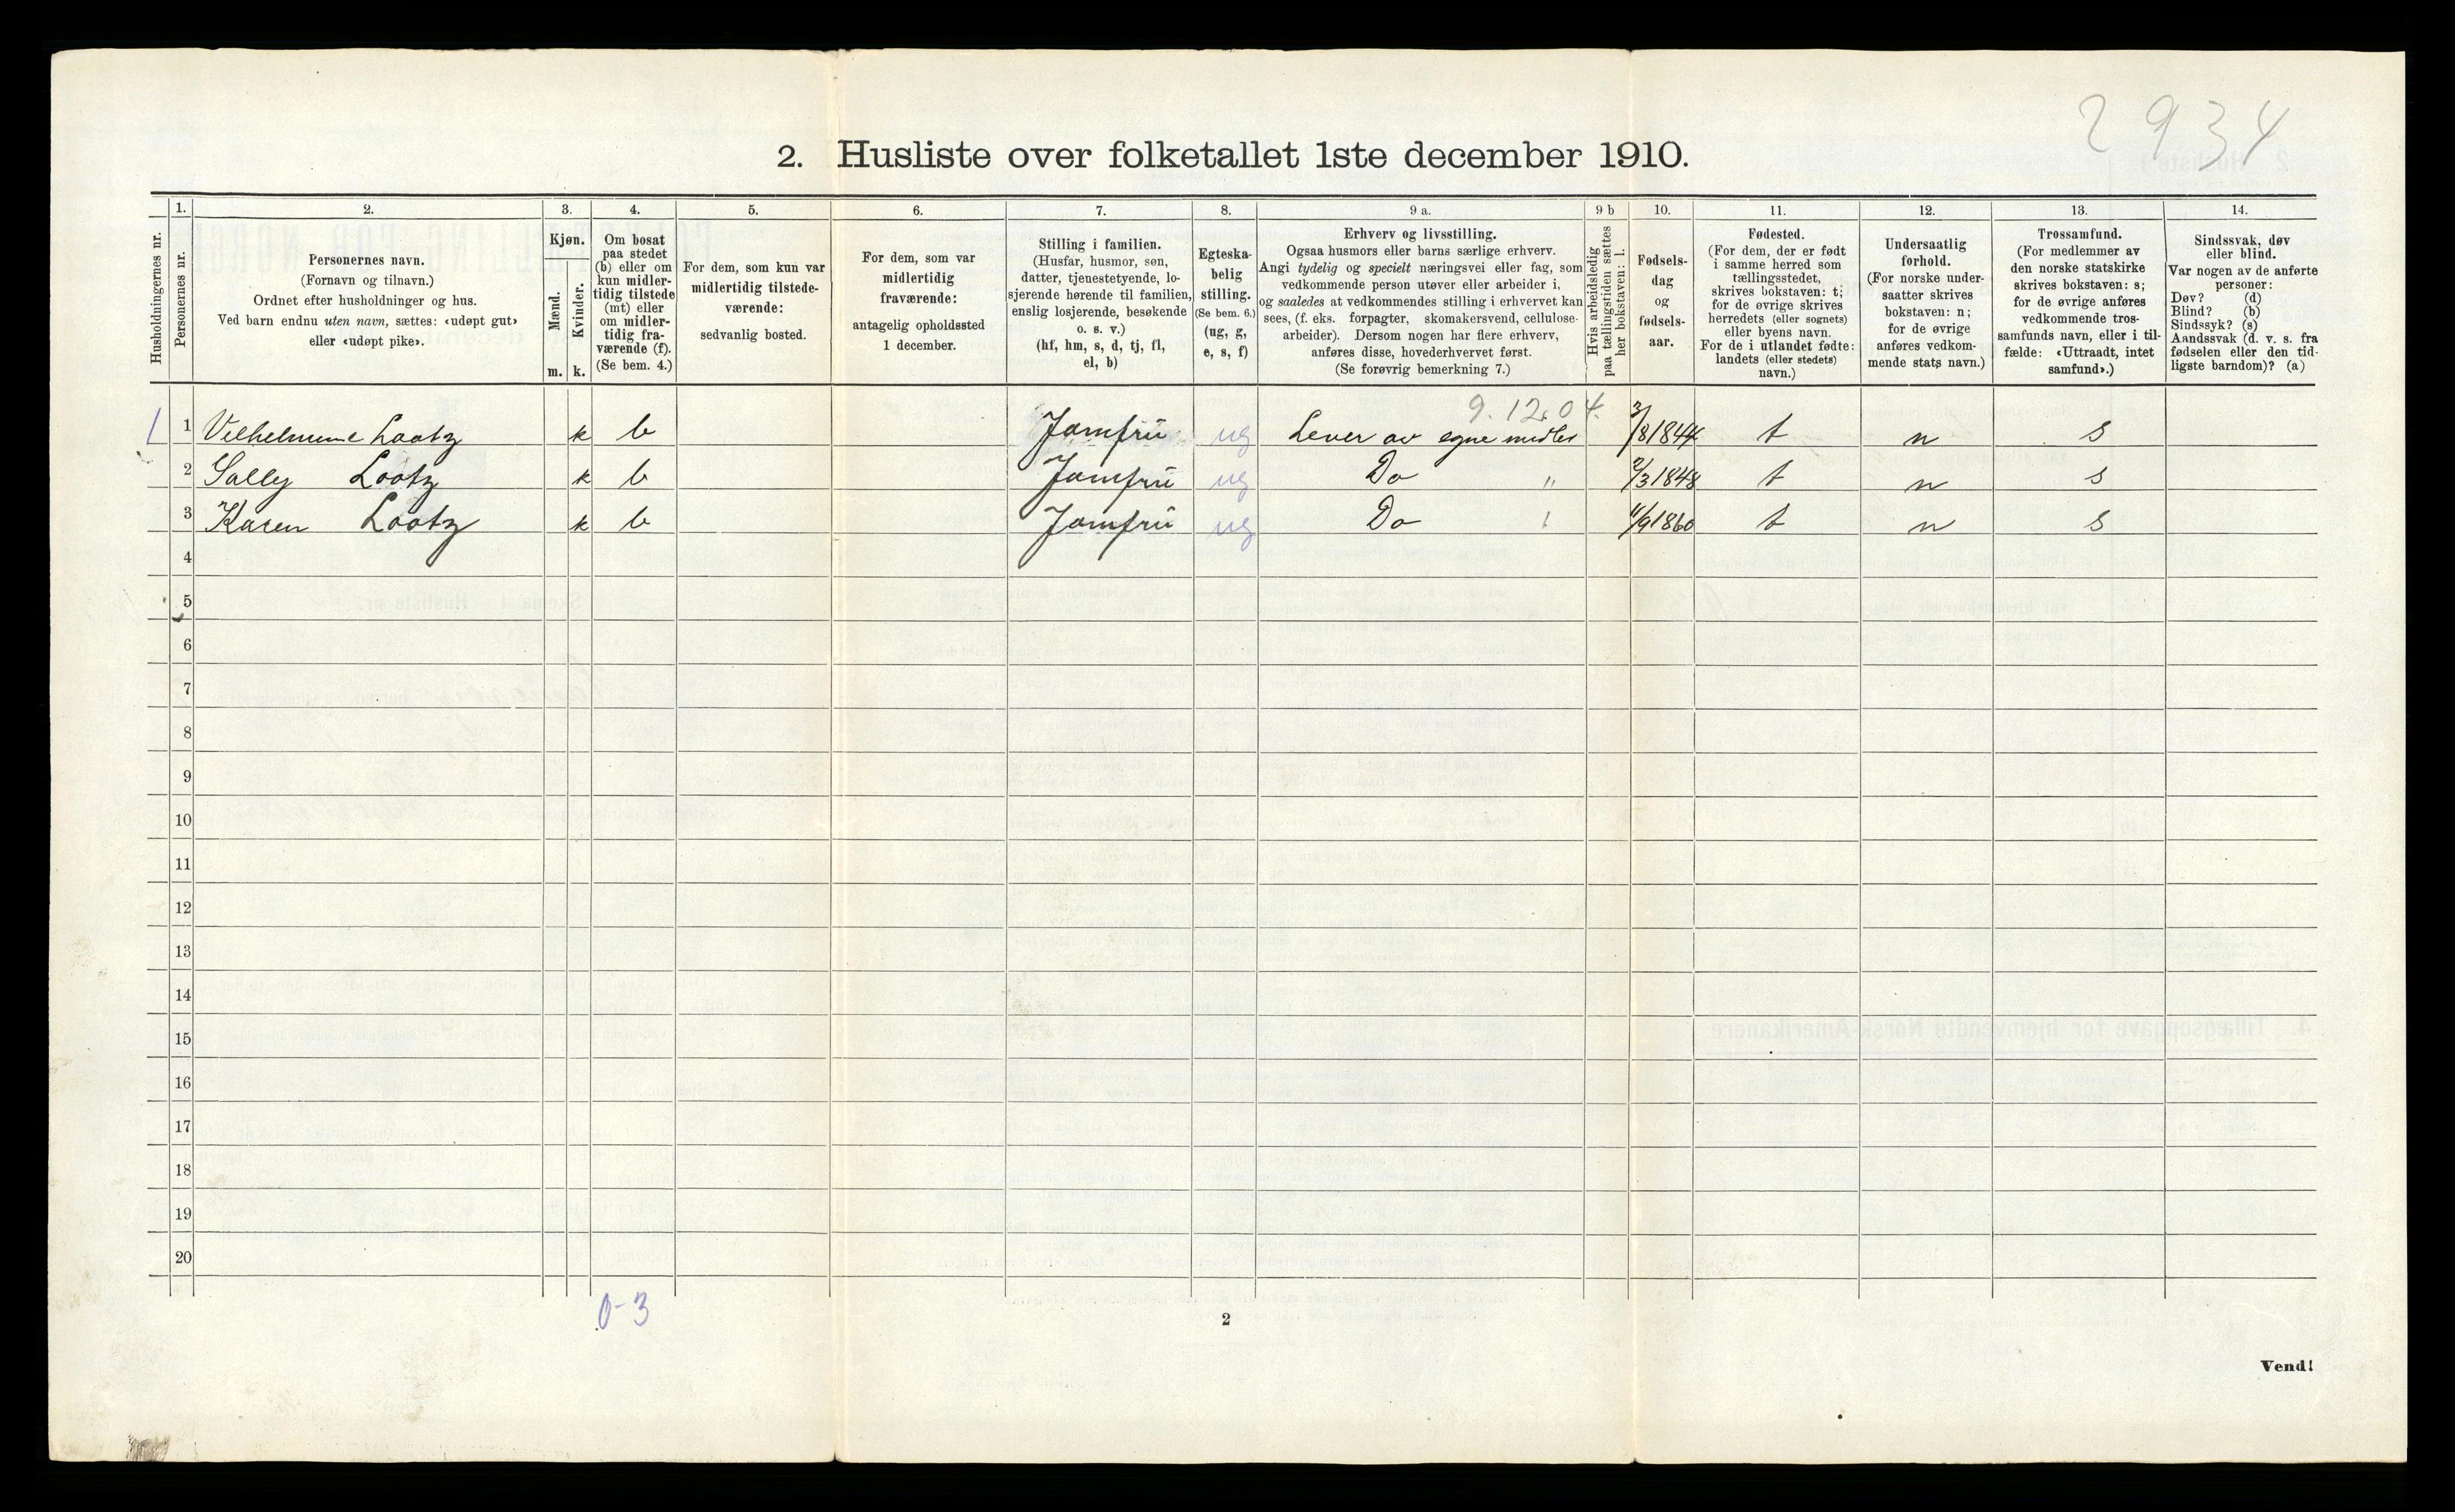 2934
2. Husliste over folketallet 1ste december 1910.
Husholdningernes nr.
1.
Personernes nr.
2.
Personernes navn.
(Fornavn og tilnavn.)
Ordnet efter husholdninger og hus.
Ved barn endnu uten navn, sættes: «udøpt gut»
eller «udøpt pike».
3.
Kjøn.
Mænd.
Kvinder.
m. k.
4.
Om bosat
paa stedet
(b) eller om
kun midler-
tidig tilstede
(mt) eller
om midler-
tidig fra-
værende (f).
(Se bem. 4.)
5.
For dem, som kun var
midlertidig tilstede-
værende:
sedvanlig bosted.
6.
For dem, som var
midlertidig
fraværende:
antagelig opholdssted
1 december.
7.
Stilling i familien.
(Husfar, husmor, søn,
datter, tjenestetyende, lo-
sjerende hørende til familien,
enslig losjerende, besøkende
o. s. v.)
(hf, hm, s, d, tj, fl,
el, b)
8.
Egteska-
belig
stilling.
(Se bem. 6.)
(ug, g,
e, s, f)
9 a.
Erhverv og livsstilling.
Ogsaa husmors eller barns særlige erhverv.
Angi tydelig og specielt næringsvei eller fag, som
vedkommende person utøver eller arbeider i,
og saaledes at vedkommendes stilling i erhvervet kan
sees, (f. eks. forpagter, skomakersvend, cellulose-
arbeider). Dersom nogen har flere erhverv,
anføres disse, hovederhvervet først.
(Se forøvrig bemerkning 7.)
9 b
Hvis arbeidsledig
paa tællingstiden sættes
her bokstaven: l.
10.
Fødsels-
dag
og
fødsels-
aar.
11.
Fødested.
(For dem, der er født
i samme herred som
tællingsstedet,
skrives bokstaven: t;
for de øvrige skrives
herredets (eller sognets)
eller byens navn.
For de i utlandet fødte:
landets (eller stedets)
navn.)
12.
Undersaatlig
forhold.
(For norske under-
saatter skrives
bokstaven: n;
for de øvrige
anføres vedkom-
mende stats navn.)
13.
Trossamfund.
(For medlemmer av
den norske statskirke
skrives bokstaven: s;
for de øvrige anføres
vedkommende tros-
samfunds navn, eller i til-
fælde: «Uttraadt, intet
samfund».)
14.
Sindssvak, døv
eller blind.
Var nogen av de anførte
personer:
Døv? (d)
Blind? (b)
Sindssyk? (s)
Aandssvak (d. v. s. fra
fødselen eller den tid-
ligste barndom)? (a)
9.12.04.
1 1 Vilhelmine Lootz k b Jomfru ug Lever av egne midler 3/8 1844 t n s
2 Sally Lootz k b Jomfru ug Do " 2/3 1848 t n s
3 Karen Lootz k b Jomfru ug Do 11/9 1860 t n s
4
5
6
7
8
9
10
11
12
13
14
15
16
17
18
19
20
0-3
2
Vend!